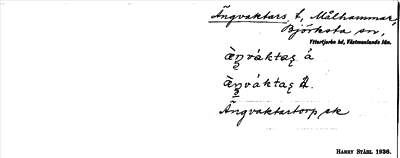 Ängvaktars t, Målhammar,
Björksta sn,
Yttertjurbo hd, Västmanlands län.
Ängvaktartorp sk
HARRY STÅHL 1936.